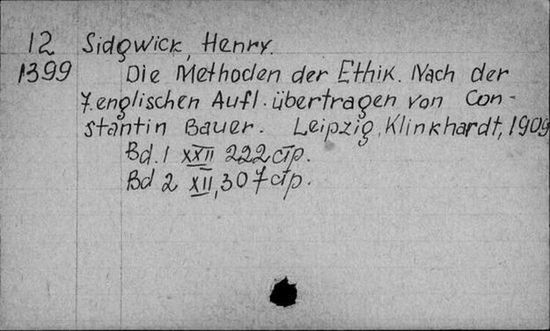 12 Sidgwick, Henry.
1399 Die Methoden der Ethik. Nach der
7. englischen Aufl. übertragen von Con-
stantin Bauer. Leipzig, Klinkhardt, 1909
Bd. 1 XXII 222 стр.
Bd 2 XII, 307 стр.